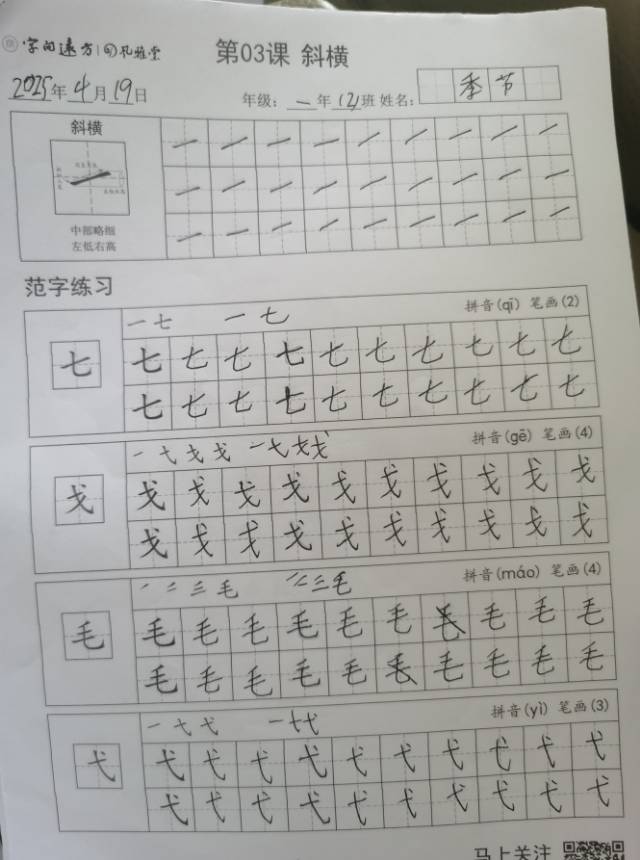 字的远方|旬孔雅堂
第03课 斜横
2025年4月19日
年级：一年(2)班 姓名：季节
斜横
中部略细
左低右高
范字练习
一七 一七 拼音(qī) 笔画(2)
七 七七七七七七七七七七
七七七七七七七七七七
一七戈戈 一七戈戈 拼音(gē) 笔画(4)
戈 戈戈戈戈戈戈戈戈戈戈
戈戈戈戈戈戈戈戈戈戈
毛 毛 拼音(máo) 笔画(4)
毛 毛毛毛毛毛毛毛毛毛
毛毛毛毛毛毛毛毛毛
一七弋 一七弋 拼音(yì) 笔画(3)
弋 弋弋弋弋弋弋弋弋弋弋
弋弋弋弋弋弋弋弋弋弋
马上关注